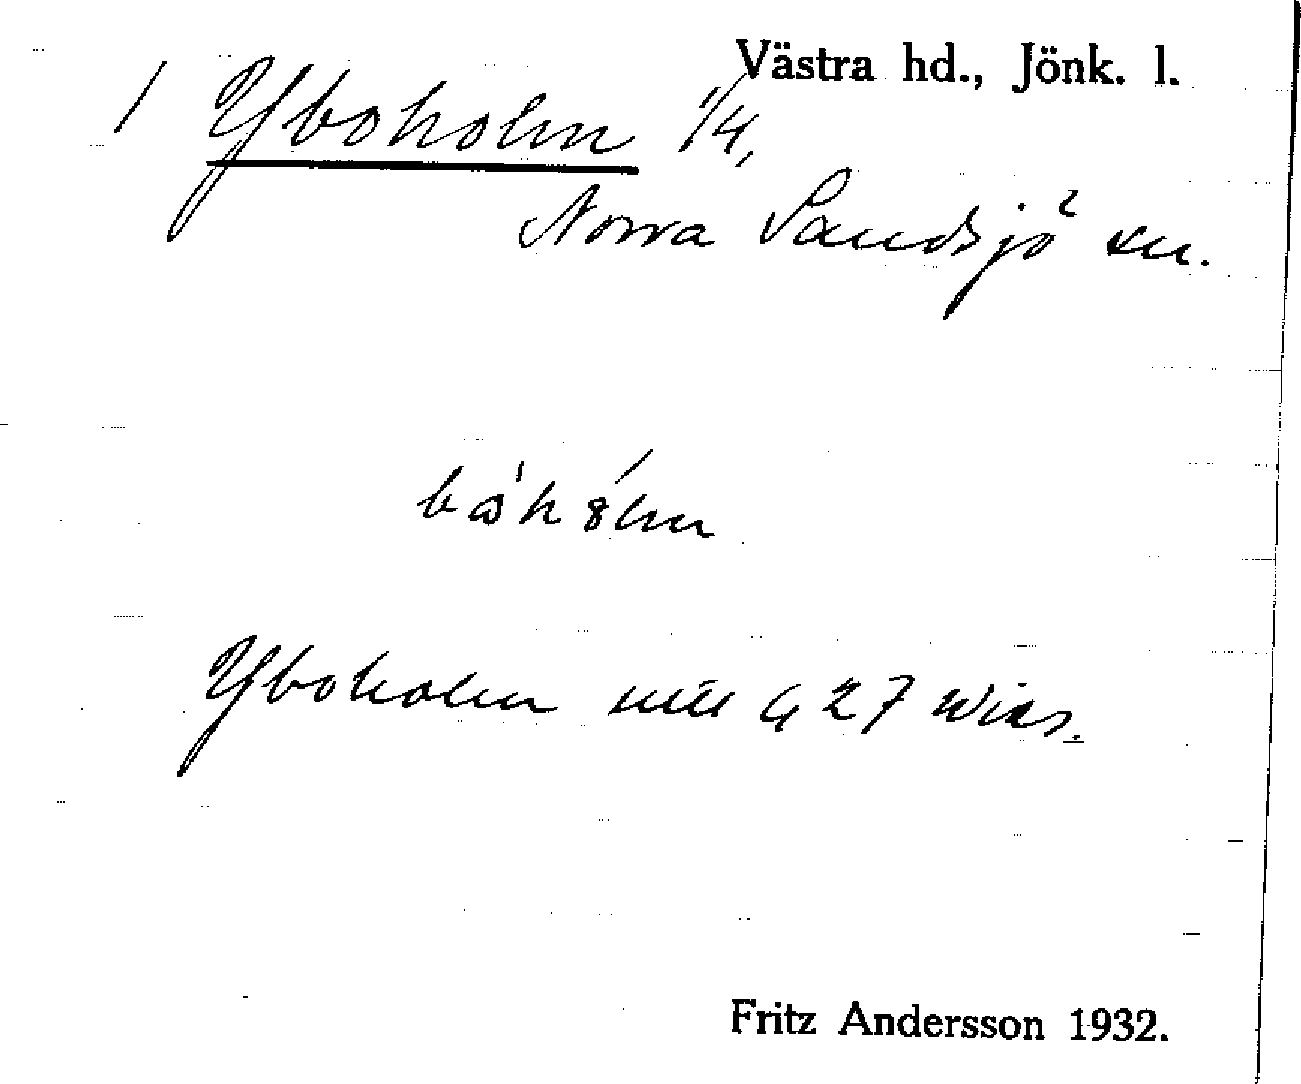 Västra hd., Jönk. l.
1 Yboholm 1/4,
Norra Sandsjö sn.
Yboholm 427 Wies.
Fritz Andersson 1932.